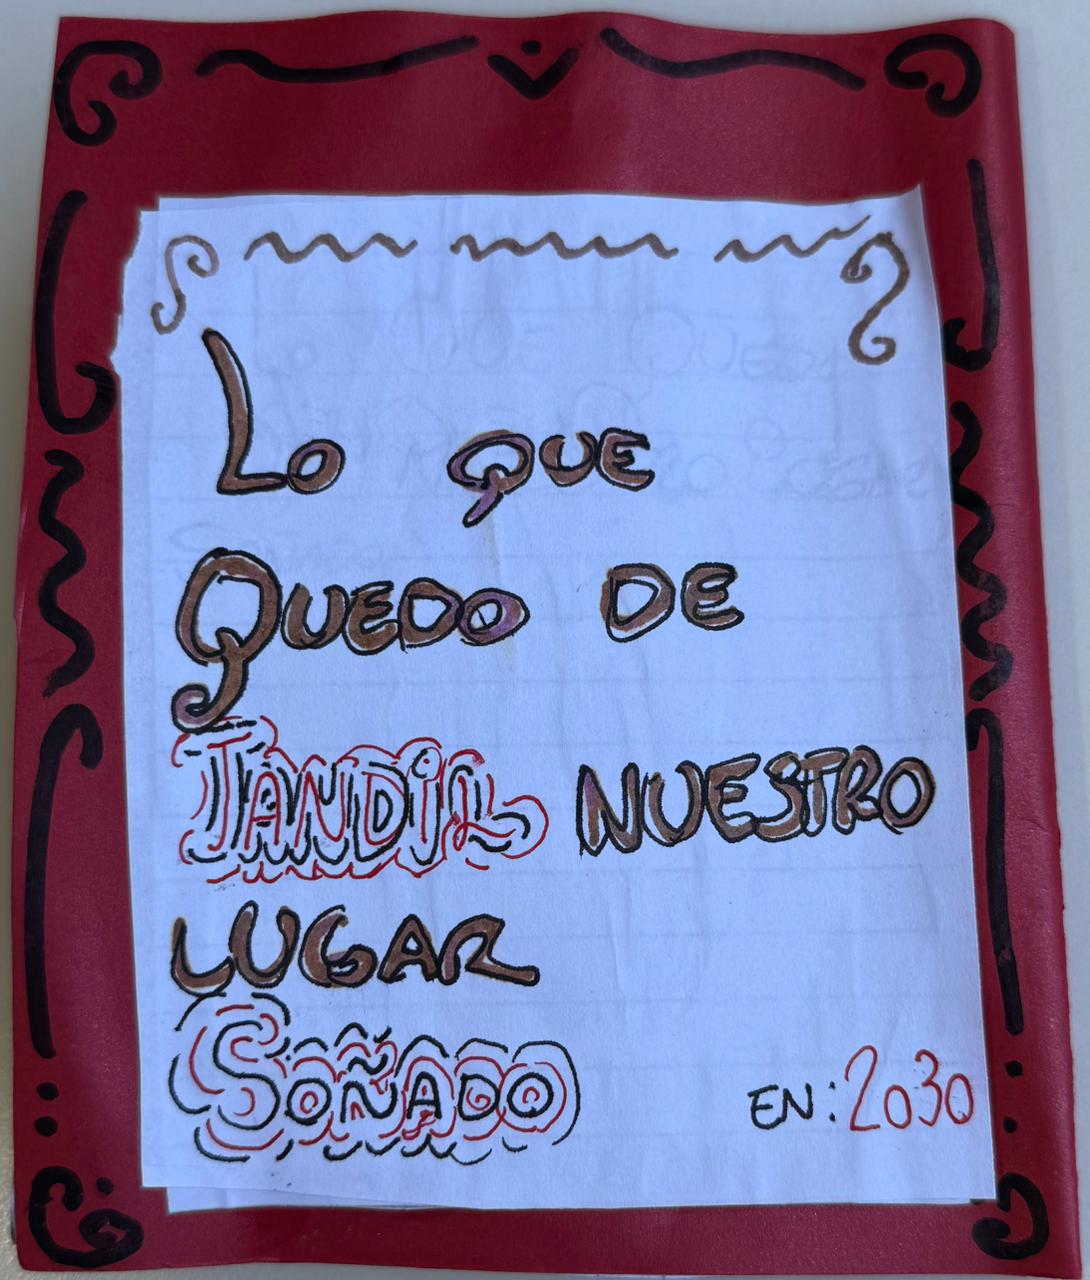 Lo QUE
QUEDO DE
TANDiL NUESTRO
LUGAR
SOÑADO
EN: 2030